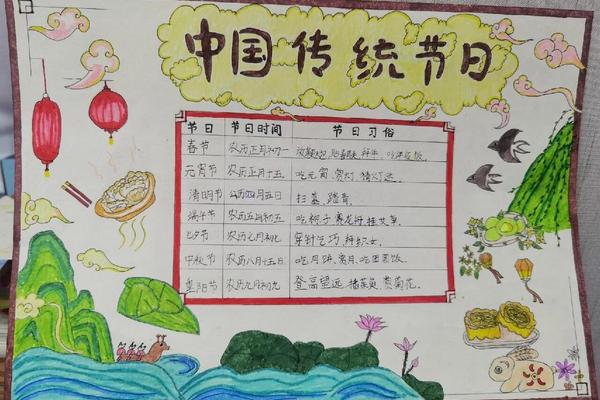 中国传统节日
节日 节日时间 节日习俗
春节 农历正月初一 放鞭炮,贴春联,拜年,吃年夜饭
元宵节 农历正月十五 吃元宵,赏灯,猜灯迷.
清明节 公历四月五日 扫墓,踏青,
端午节 农历五月初五 吃粽子,赛龙舟,挂艾草,
七夕节 农历七月初七 穿针乞巧,拜织女,
中秋节 农历八月十五日 吃月饼,赏月,吃团圆饭,
重阳节 农历九月初九 登高望远,插茱萸,赏菊花,